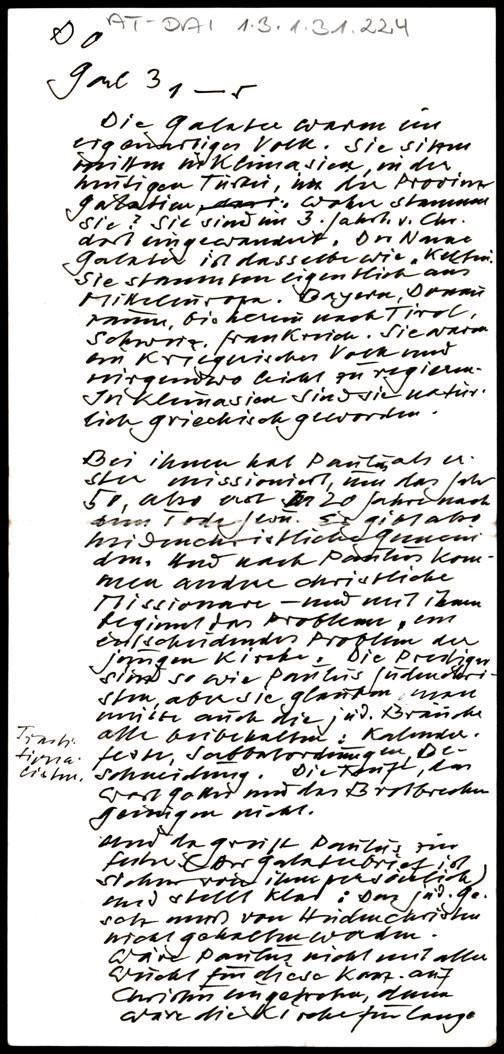 Do AT-DAI 1.3.1.31.224
Gal 3 1-5
Die Galater waren ein
eigenartiges Volk. Sie sitzen
mitten in Kleinasien, in der
heutigen Türkei, in der Provinz
Galatien. Woher stammen
sie? Sie sind im 3. Jahrh. v. Chr.
dort eingewandert. Der Name
Galater ist dasselbe wie „Kelten.
Sie stammten eigentlich aus
Mitteleuropa. Bayern, Donau
raum, bis herein nach Tirol,
Schweiz, Frankreich. Sie waren
ein Kriegerisches Volk und
nirgendwo leicht zu regieren.
In Kleinasien sind sie natür-
lich griechisch geworden.
Bei ihnen hat Paulus als er-
ster missioniert, um das Jahr
50, also erst 20 Jahre nach
dem Tode Jesu. Es gibt also
heidenchristliche Gemein
den. Und nach Paulus kom-
men andere christliche
Missionare – und mit ihnen
beginnt das Problem, ein
entscheidendes Problem der
jungen Kirche. Die Prediger
sind so wie Paulus Judenchri-
sten, aber sie glauben, man
müsse auch die jüd. Bräuche
alle beibehalten: Kalender.
feste, Sabbatordnungen Be-
schneidung. Die Taufe, das
Wort Gottes und das Brotbrechen
genügen nicht.
Traditi
tiona
listen.
Und da greift Paulus zur
Feder (Der Galaterbrief ist
sicher von ihm persönlich)
und stellt klar: Das jüd. Ge-
setz muß von Heidenchristen
nicht gehalten werden.
Wäre Paulus nicht mit aller
Wucht für diese Konz. auf
Christus eingetreten, dann
wäre die Kirche für lange